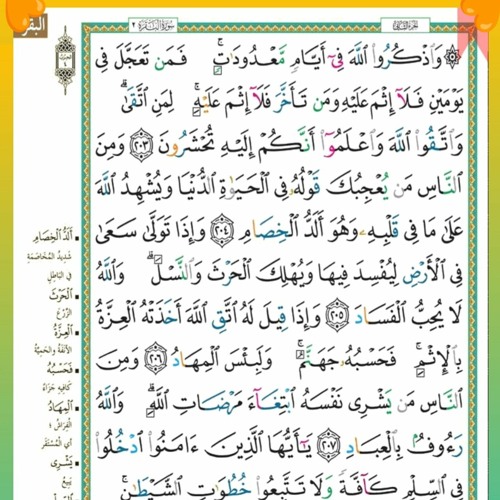 الجزء الثاني
سُورَةُ البَقَرَة ٢
البقر
۞ وَٱذْكُرُوا۟ ٱللَّهَ فِىٓ أَيَّامٍ مَّعْدُودَٰتٍ ۚ فَمَن تَعَجَّلَ فِى
يَوْمَيْنِ فَلَآ إِثْمَ عَلَيْهِ وَمَن تَأَخَّرَ فَلَآ إِثْمَ عَلَيْهِ ۚ لِمَنِ ٱتَّقَىٰ ۗ
وَٱتَّقُوا۟ ٱللَّهَ وَٱعْلَمُوٓا۟ أَنَّكُمْ إِلَيْهِ تُحْشَرُونَ ٢٠٣ وَمِنَ
ٱلنَّاسِ مَن يُعْجِبُكَ قَوْلُهُۥ فِى ٱلْحَيَوٰةِ ٱلدُّنْيَا وَيُشْهِدُ ٱللَّهَ
عَلَىٰ مَا فِى قَلْبِهِۦ وَهُوَ أَلَدُّ ٱلْخِصَامِ ٢٠٤ وَإِذَا تَوَلَّىٰ سَعَىٰ
فِى ٱلْأَرْضِ لِيُفْسِدَ فِيهَا وَيُهْلِكَ ٱلْحَرْثَ وَٱلنَّسْلَ ۗ وَٱللَّهُ
لَا يُحِبُّ ٱلْفَسَادَ ٢٠٥ وَإِذَا قِيلَ لَهُ ٱتَّقِ ٱللَّهَ أَخَذَتْهُ ٱلْعِزَّةُ
بِٱلْإِثْمِ ۚ فَحَسْبُهُۥ جَهَنَّمُ ۚ وَلَبِئْسَ ٱلْمِهَادُ ٢٠٦ وَمِنَ
ٱلنَّاسِ مَن يَشْرِى نَفْسَهُ ٱبْتِغَآءَ مَرْضَاتِ ٱللَّهِ ۗ وَٱللَّهُ
رَءُوفٌۢ بِٱلْعِبَادِ ٢٠٧ يَٰٓأَيُّهَا ٱلَّذِينَ ءَامَنُوا۟ ٱدْخُلُوا۟
فِى ٱلسِّلْمِ كَآفَّةً وَلَا تَتَّبِعُوا۟ خُطُوَٰتِ ٱلشَّيْطَٰنِ ۚ
أَلَدُّ ٱلْخِصَامِ
شَدِيدُ المُخَاصَمَةِ
فِي البَاطِلِ
ٱلْحَرْثَ
الزَّرْعَ
ٱلْعِزَّةُ
الأَنَفَةُ وَالحَمِيَّةُ
فَحَسْبُهُۥ
كَافِيهِ جَزَاءً
ٱلْمِهَادُ
الفِرَاشُ؛
أَيِ المُسْتَقَرُّ
يَشْرِى
يَبِيعُ